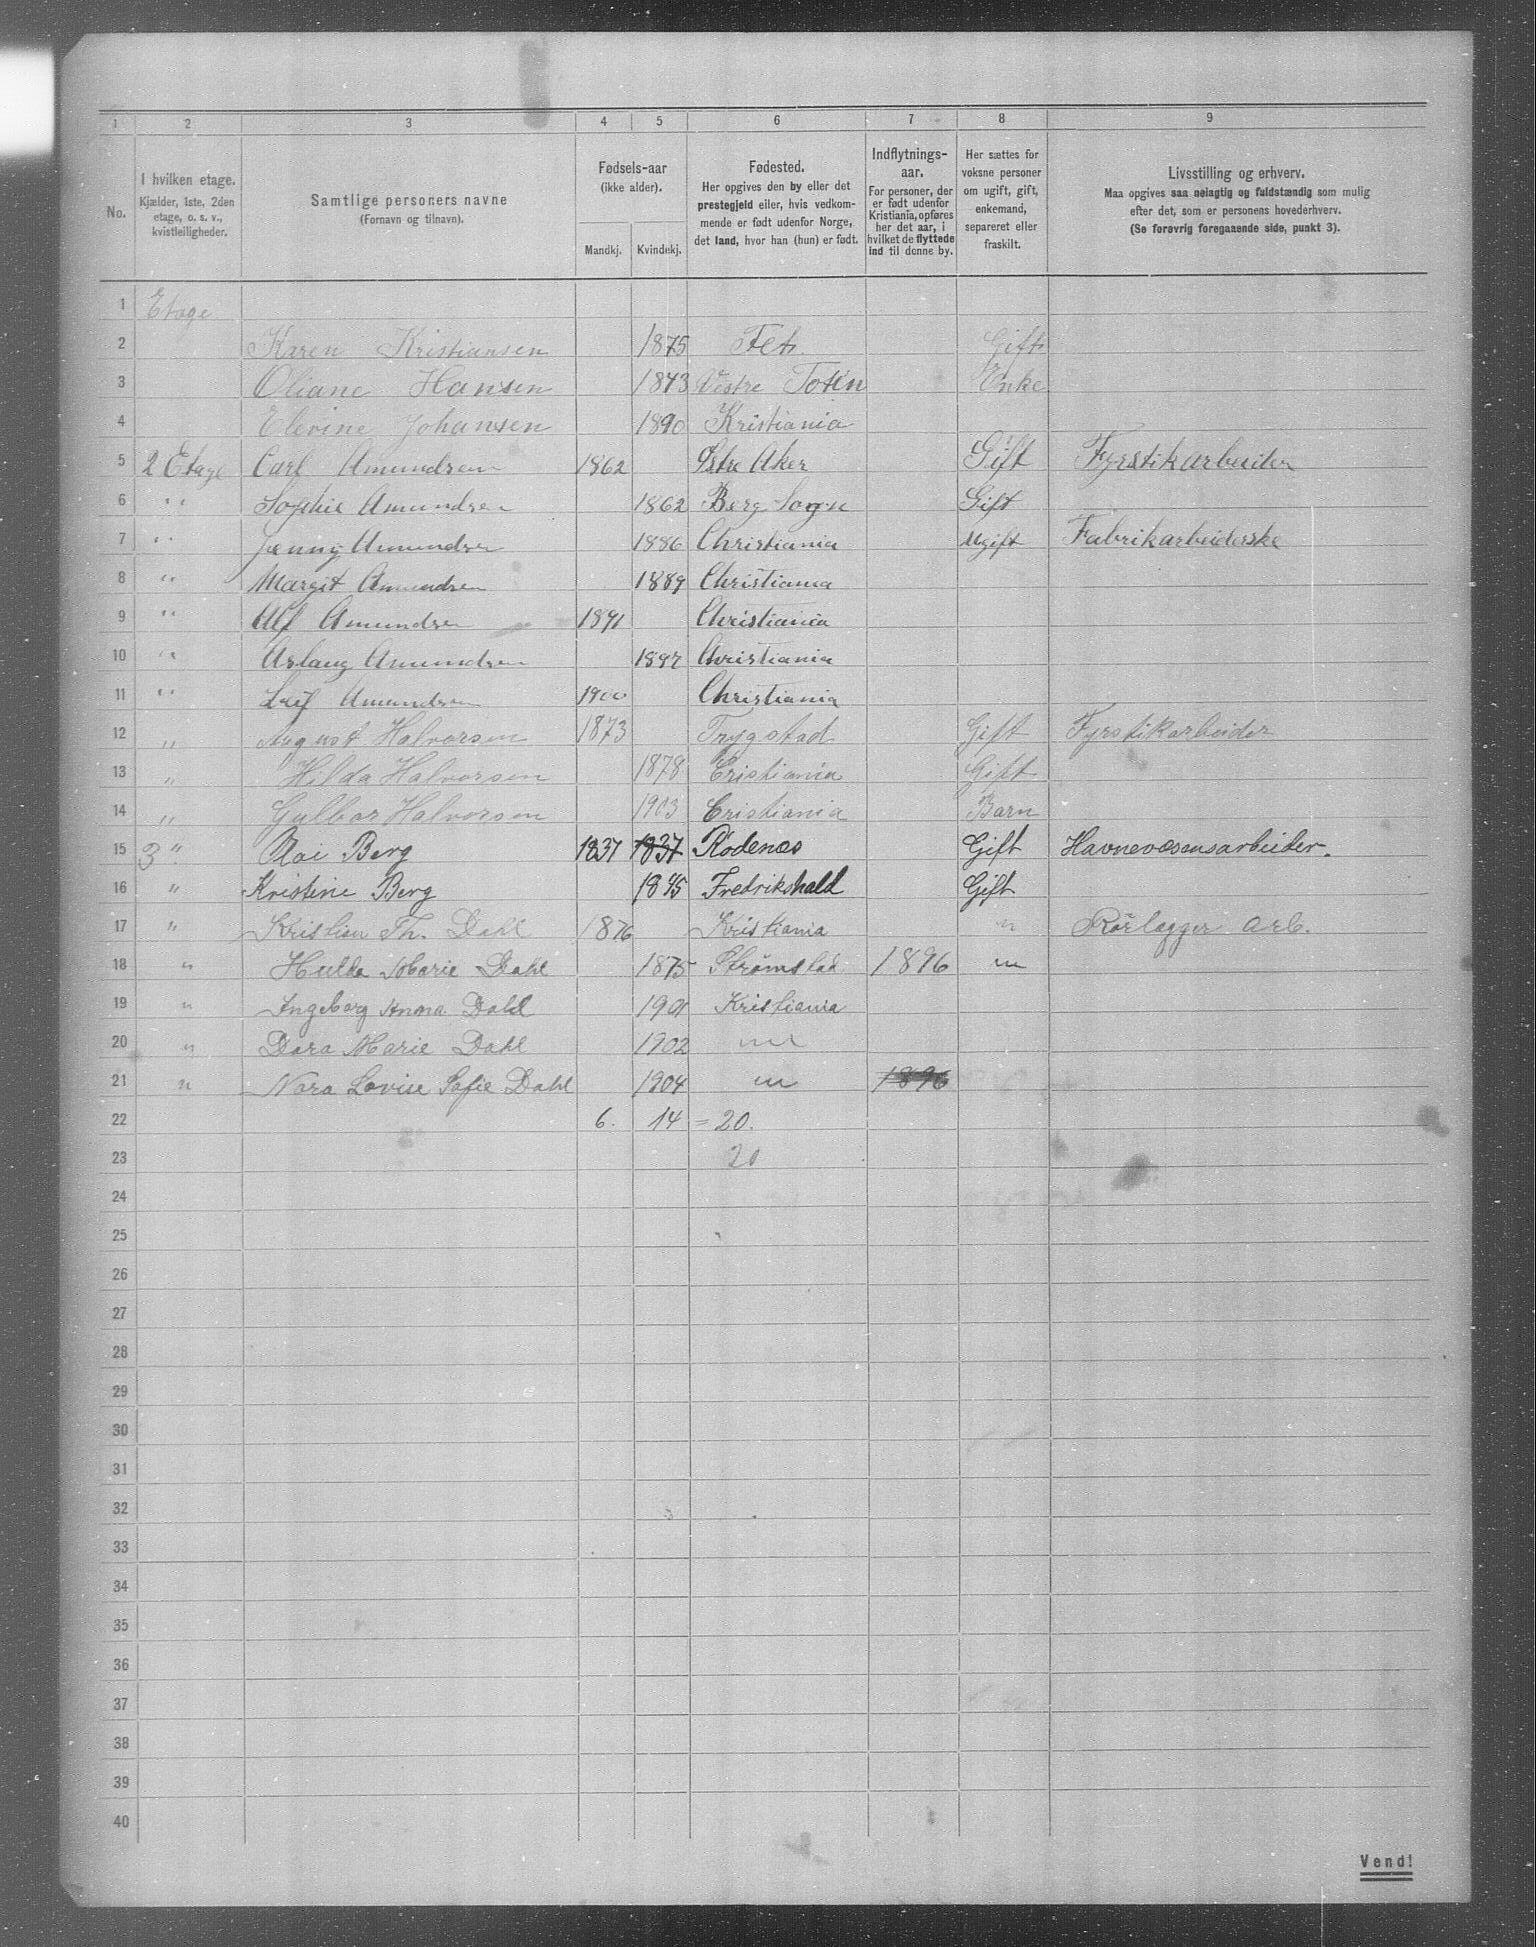 1 2 3 4 5 6 7 8 9
No.
I hvilken etage.
Kjælder, 1ste, 2den
etage, o. s. v.,
kvistleiligheder.
Samtlige personers navne
(Fornavn og tilnavn).
Fødsels-aar
(ikke alder).
Mandkj. Kvindekj.
Fødested.
Her opgives den by eller det
prestegjeld eller, hvis vedkom-
mende er født udenfor Norge,
det land, hvor han (hun) er født.
Indflytnings-
aar.
For personer, der
er født udenfor
Kristiania, opføres
her det aar, i
hvilket de flyttede
ind til denne by.
Her sættes for
voksne personer
om ugift, gift,
enkemand,
separeret eller
fraskilt.
Livsstilling og erhverv.
Maa opgives saa nøiagtig og fuldstændig som mulig
efter det, som er personens hovederhverv.
(Se forøvrig foregaaende side, punkt 3).
1 Etage
2 Karen Kristiansen 1875 Fet. Gift
3 Oliane Hansen 1843 Vestre Toten Enke
4 Elevine Johansen 1890 Kristiania
5 2 Etage Carl Amundsen 1862 Østre Aker Gift Fyrstikarbeider
6 " Sophie Amundsen 1862 Berg Sogn Gift
7 " Jenny Amundsen 1886 Christiania Ugift Fabrikarbeiderske
8 " Margit Amundsen 1889 Christiania
9 " Alf Amundsen 1891 Christiania
10 " Aslaug Amundsen 1897 Christiania
11 " Leif Amundsen 1900 Christiania
12 " August Halvorsen 1873 Trygstad Gift Fyrstikarbeider
13 " Hilda Halvorsen 1878 Cristiania Gift
14 " Gylbor Halvorsen 1903 Cristiania Barn
15 3 " Berg 1837 1837 Rødenæs Gift Havnevæsensarbeider.
16 " Kristine Berg 1845 Fredrikshald Gift
17 " Kristian Th. Dahl 1876 Kristiania " Rörlægger Arb.
18 " Hulda Marie Dahl 1875 Strømstad 1896 "
19 " Ingeborg Anna Dahl 1901 Kristiania
20 " Dora Marie Dahl 1902 "
21 " Nora Lovise Sofie Dahl 1904 " 1896
22 6. 14 = 20.
23 20
24
25
26
27
28
29
30
31
32
33
34
35
36
37
38
39
40
Vend!